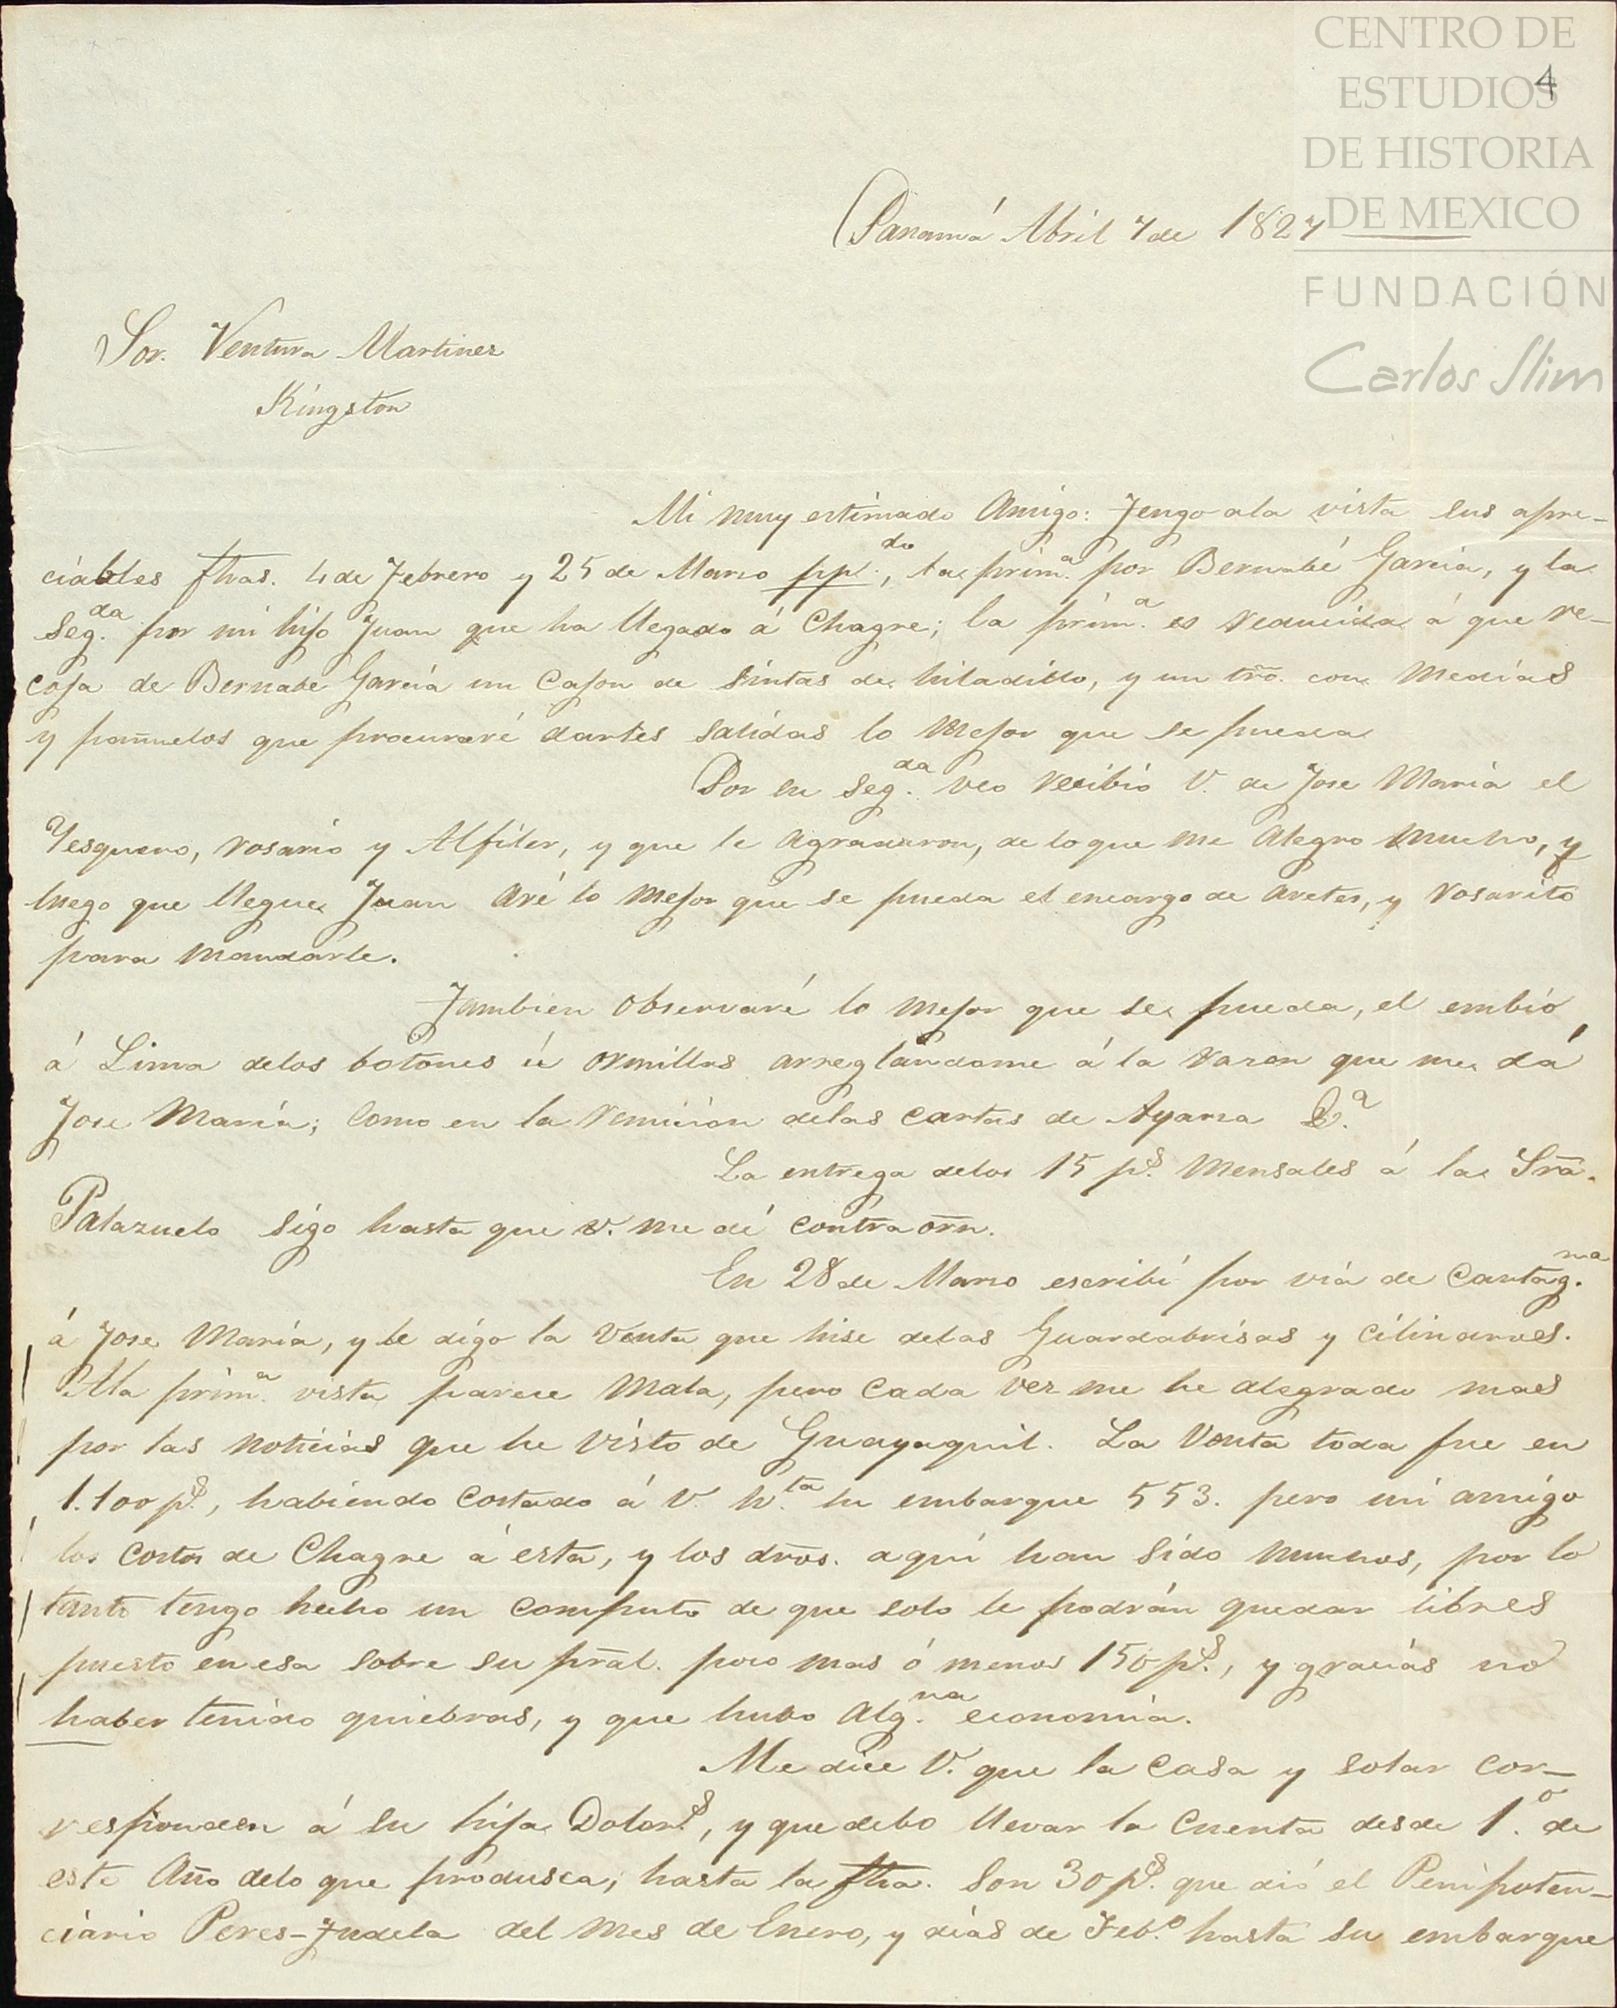 CENTRO DE
ESTUDIOS
DE HISTORIA
DE MEXICO
FUNDACIÓN
Carlos Slim
4
Panamá Abril 7 de 1827
Sor. Ventura Martinez
Kingston
Mi muy estimado Amigo: Tengo ala vista sus apre-
ciables fhas. 4 de Febrero y 25 de Marzo pp.do, la prim.a por Bernabé Garcia, y la
seg.da por mi hijo Juan que ha llegado á Chagre; la prim.a es reducida á que re-
coja de Bernabe Garcia un Cajon de sintas de hiladillo, y un tro. con Medias
y pañuelos que procuraré darles salidas lo mejor que se pueda
Por su seg.da veo recibió V. de Jose Maria el
Yesquero, rosario y Alfiler, y que le agradaron, de lo que me alegro mucho, y
luego que llegue Juan aré lo mejor que se pueda el encargo de aretes, y rosarito
para mandarle.
Tambien observaré lo mejor que se pueda, el embio
á Lima delos botones ú ormillas arreglandome á la razon que me dá
Jose Maria; como en la remicion delas cartas de Ayarza &.a
La entrega delos 15 p.s mensales á la Sra.
Palazuelo sigo hasta que v. me dé contra orn.
En 28 de Marzo escribí por via de Cartag.na
á Jose Maria, y le digo la venta que hise delas Guardabrisas y cilindros.
Ala prim.a vista parece mala, pero cada vez me he alegrado mas
por las noticias que he visto de Guayaquil. La Venta toda fue en
1.100 p.s, habiendo costado á V. h.ta su embarque 553. pero mi amigo
los costos de Chagre á esta, y los dros. aqui han sido muchos, por lo
tanto tengo hecho un computo de que solo le podrán quedar libres
puesto en esa sobre su pral. poco mas ó menos 150 p.s, y gracias no
haber tenido quiebras, y que hubo alg.na economia.
Me dice V. que la casa y solar cor-
responden á su hija Dolor.s, y que debo llevar la cuenta desde 1.o de
este Año delo que produsca; hasta la fha. son 30 p.s que dió el Penipoten-
ciario Peres-Tudela del mes de Enero, y dias de Feb.o hasta su embarque